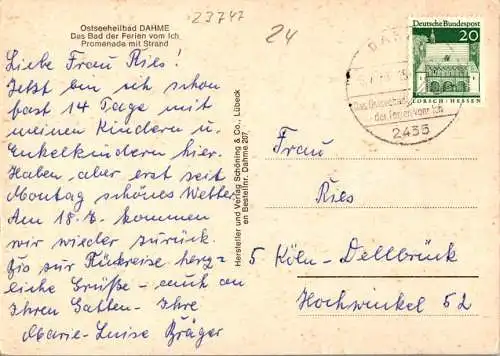 23747
24
Ostseeheilbad DAHME
Das Bad der Ferien vom Ich
Promenade mit Strand
Liebe Frau Ries!
Jetzt bin ich schon
fast 14 Tage mit
meinen Kindern u.
Enkelkindern hier.
Haben aber erst seit
Montag schönes Wetter
Am 18.7. kommen
wir wieder zurück.
Bis zur Rückreise herz-
liche Grüße - auch an
Ihren Gatten - Ihre
Marie-Luise Bräger
Hersteller und Verlag Schöning & Co., Lübeck
en Bestellnr. Dahme 207
Deutsche Bundespost
20
LORSCH/HESSEN
Das Ostseebad
der Ferien vom Ich
2435
Frau
Ries
5 Köln-Dellbrück
Hochwinkel 52